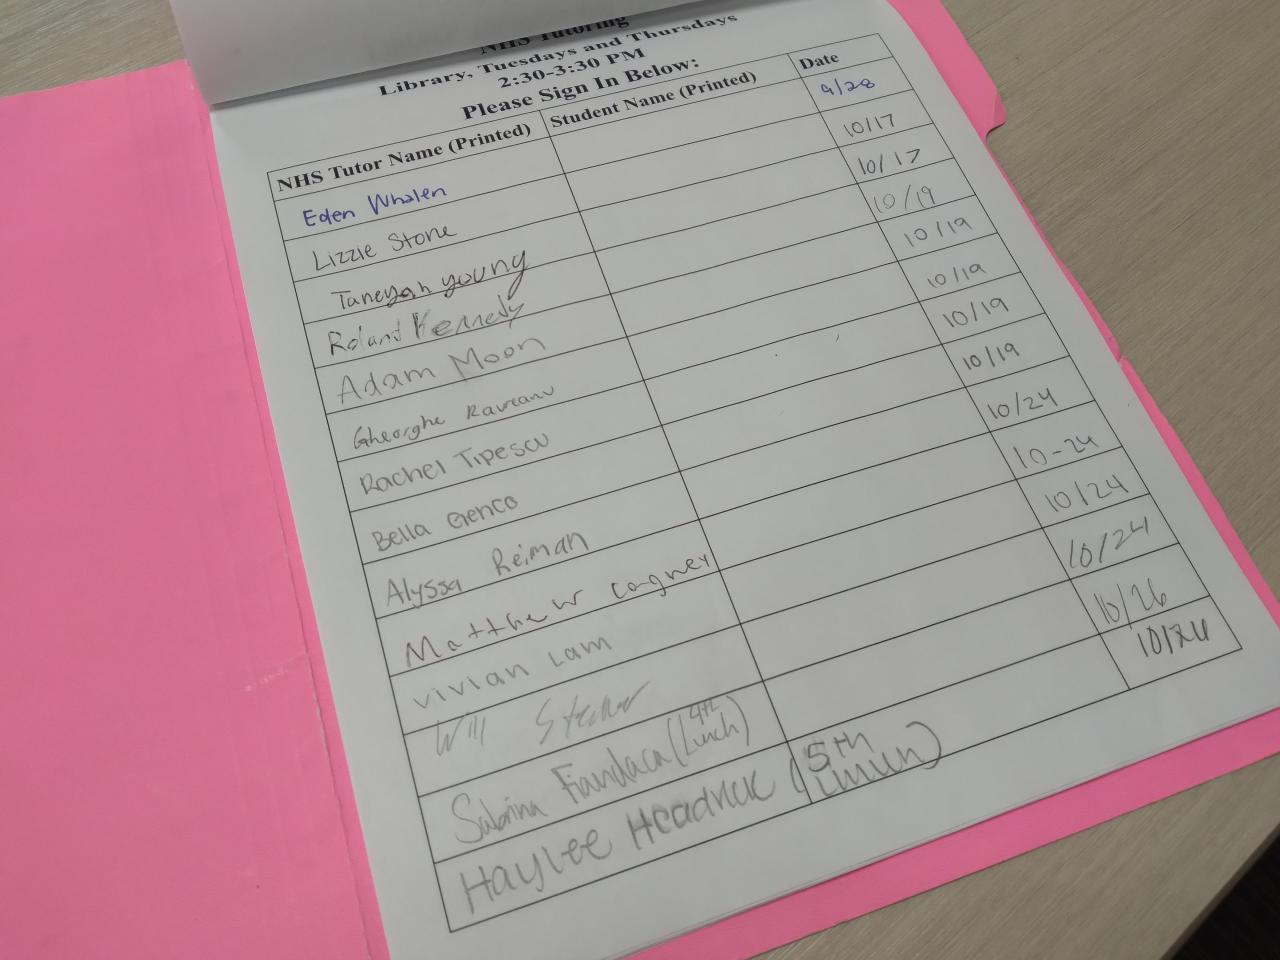 NHS Tutoring
Library, Tuesdays and Thursdays
2:30-3:30 PM
Please Sign In Below:
NHS Tutor Name (Printed) Student Name (Printed) Date
Eden Whalen 9/28
Lizzie Stone 10/17
Taneyah young 10/17
Roland Kennedy 10/19
Adam Moon 10/19
Gheorghe Raveanu 10/19
Rachel Tipescu 10/19
Bella Genco 10/19
Alyssa Reiman 10/24
Matthew cagney 10-24
vivian Lam 10/24
Will 10/24
Sabrina Fiandaca (4th Lunch) 10/26
Haylee Headrick (5th 10/26